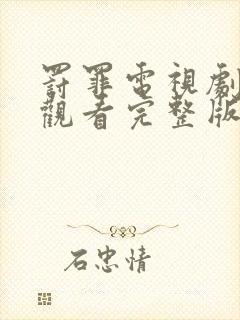 罰罪電視劇
觀看完整版
石忠情